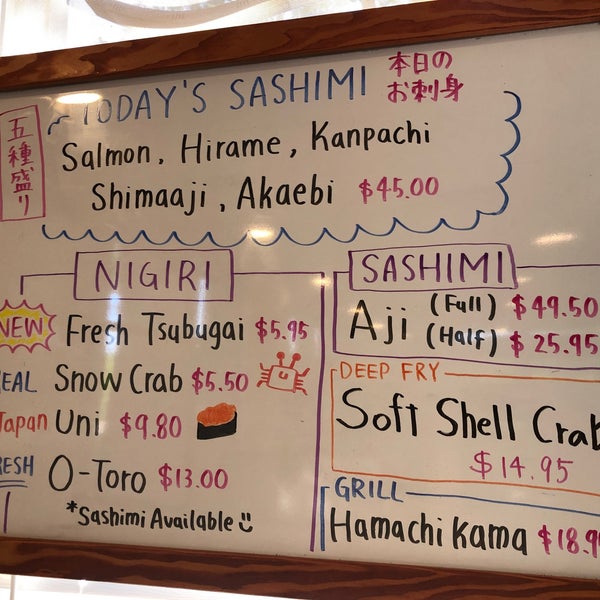 TODAY'S SASHIMI
本日の
お刺身
五種盛り
Salmon, Hirame, Kanpachi
Shimaaji, Akaebi $45.00
NIGIRI
NEW Fresh Tsubugai $5.95
REAL Snow Crab $5.50
Japan Uni $9.80
FRESH O-Toro $13.00
*Sashimi Available
SASHIMI
Aji (Full) $49.50
(Half) $25.95
DEEP FRY
Soft Shell Crab
$14.95
GRILL
Hamachi Kama $18.9